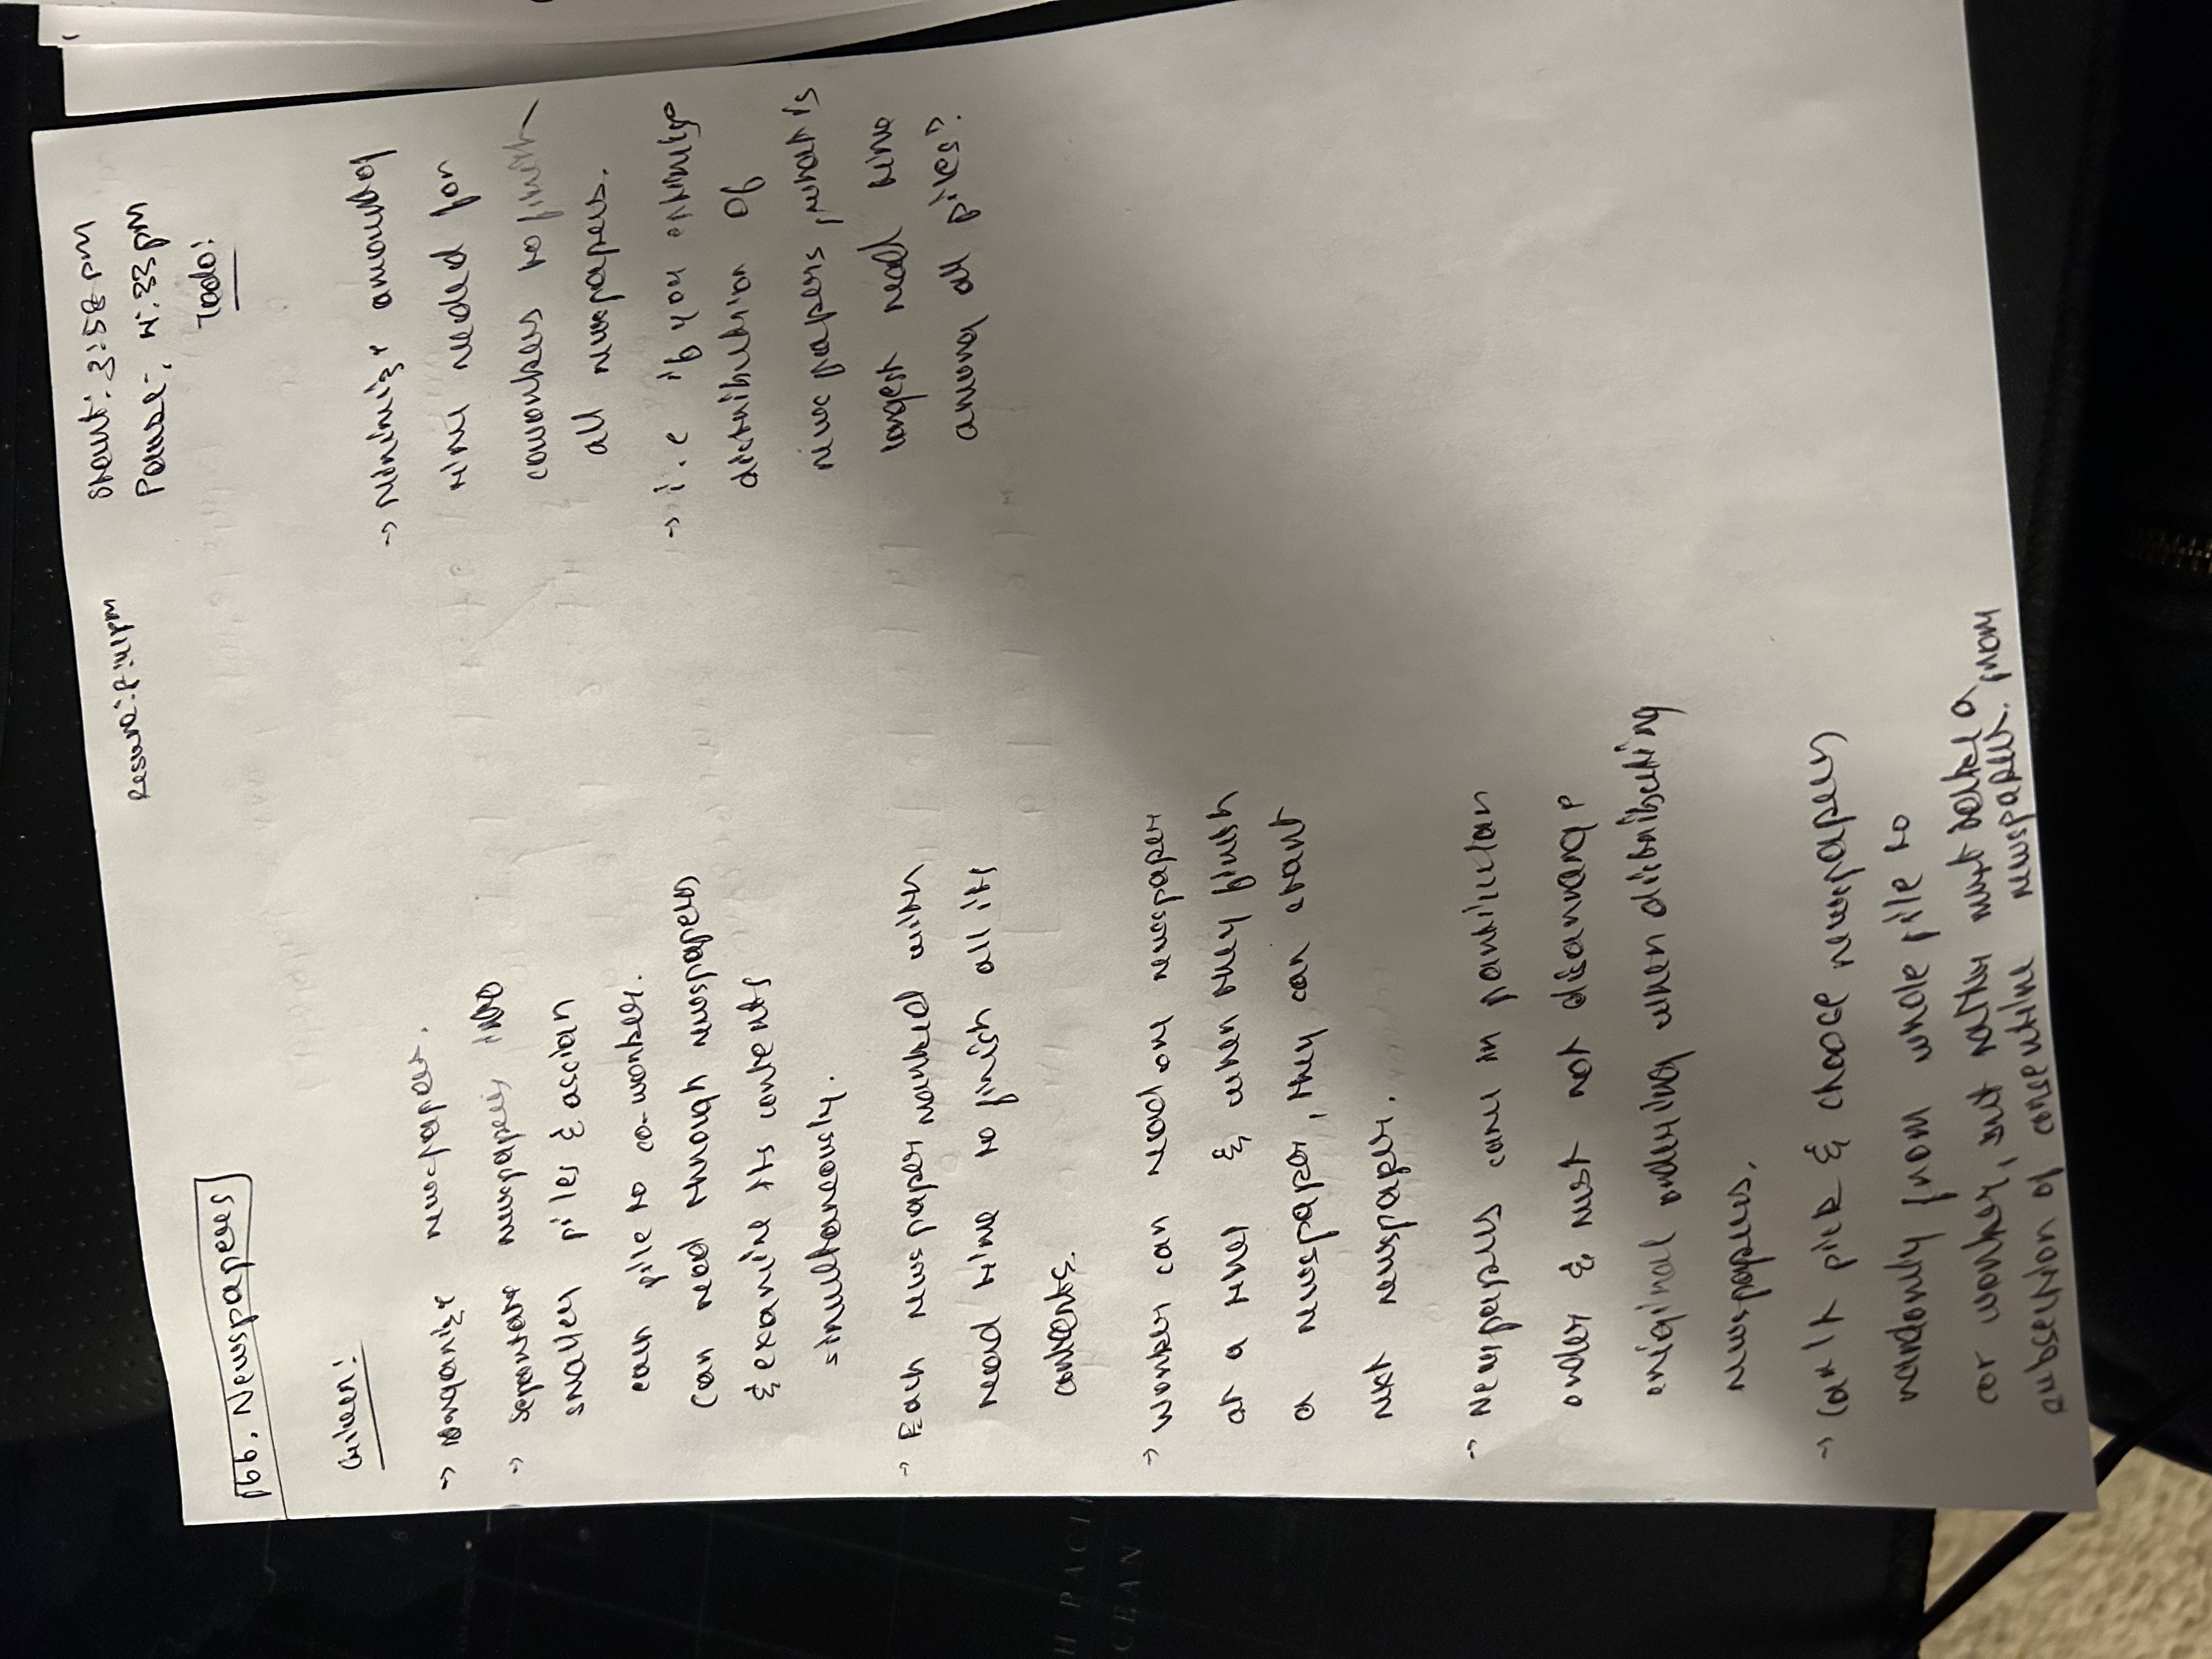 Resume: 8:41pm
Start: 3:58 pm
Pause: 4:33pm
Todo:
166. Newspapers
Given:
→ Reorganize newspapers.
→ Separate newspapers into
smaller piles & assign
each pile to co-worker.
Can read through newspapers
& examine its contents
simultaneously.
→ Each newspaper marked with
read time to finish all its
contents.
→ Worker can read one newspaper
at a time & when they finish
a newspaper, they can start
next newspaper.
→ Newspapers came in particular
order & must not disarrange
original ordering when distributing
newspapers.
→ Can't pick & choose newspapers
randomly from whole pile to
co worker, but rather must take a
subsection of consecutive newspapers from
→ Minimize amount of
time needed for
coworkers to finish
all newspapers.
→ i.e if you optimize
distribution of
newspapers, what is
longest read time
among all piles?
H PACIF
CEAN